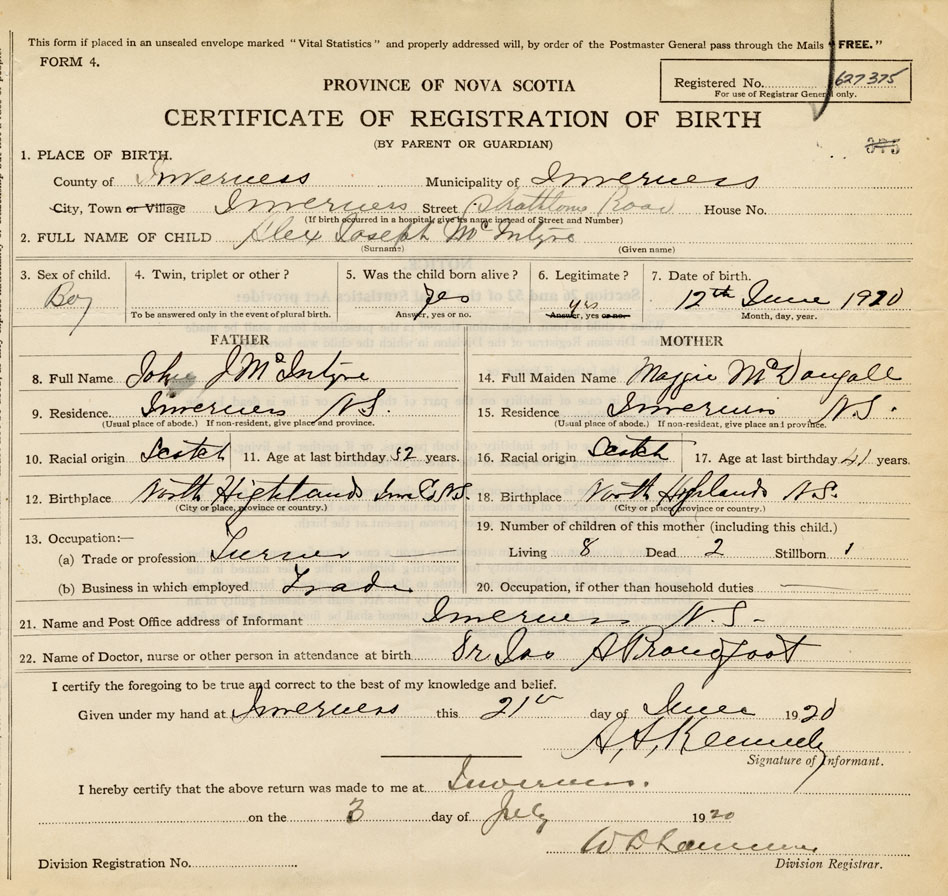 This form if placed in an unsealed envelope marked "Vital Statistics" and properly addressed will, by order of the Postmaster General pass through the Mails "FREE."
FORM 4.
Registered No. 627375
For use of Registrar General only.
PROVINCE OF NOVA SCOTIA
CERTIFICATE OF REGISTRATION OF BIRTH
(BY PARENT OR GUARDIAN)
375
1. PLACE OF BIRTH.
County of Inverness Municipality of Inverness
City, Town or Village Inverness Street Strathlorne Road House No.
(If birth occurred in a hospital, give its name instead of Street and Number)
2. FULL NAME OF CHILD Alex Joseph McIntyre
(Surname) (Given name)
3. Sex of child. 4. Twin, triplet or other? 5. Was the child born alive? 6. Legitimate? 7. Date of birth.
Boy Yes yes 12th June 1920
To be answered only in the event of plural birth. Answer, yes or no. Answer, yes or no. Month, day, year.
FATHER MOTHER
8. Full Name John J McIntyre 14. Full Maiden Name Maggie McDougall
9. Residence Inverness N.S. 15. Residence Inverness N.S.
(Usual place of abode.) If non-resident, give place and province. (Usual place of abode.) If non-resident, give place and province.
10. Racial origin Scotch 11. Age at last birthday 52 years. 16. Racial origin Scotch 17. Age at last birthday 41 years.
12. Birthplace North Highlands Inv Co N.S. 18. Birthplace North Highlands N.S.
(City or place, province or country.) (City or place, province or country.)
19. Number of children of this mother (including this child.)
13. Occupation:—
(a) Trade or profession Living 8 Dead 2 Stillborn 1
(b) Business in which employed Trade 20. Occupation, if other than household duties
21. Name and Post Office address of Informant Inverness N.S.
22. Name of Doctor, nurse or other person in attendance at birth Dr. Jas A Proudfoot
I certify the foregoing to be true and correct to the best of my knowledge and belief.
Given under my hand at Inverness this 21st day of June 1920
A. S. Kennedy
Signature of Informant.
I hereby certify that the above return was made to me at Inverness.
on the 3 day of July 1920
W D
Division Registration No. Division Registrar.